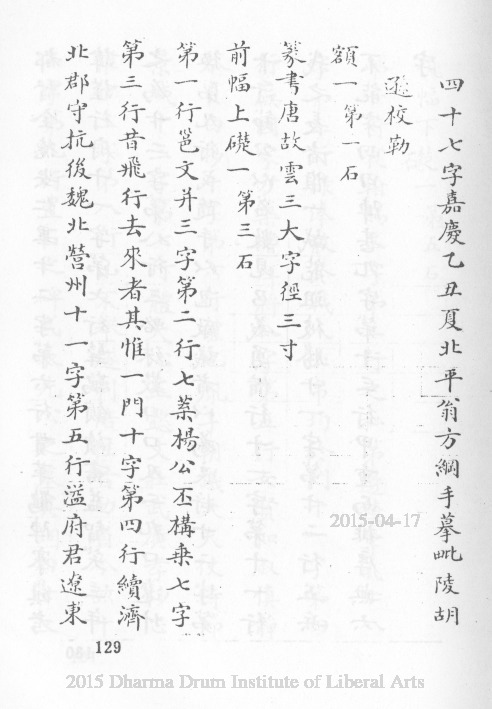 四十七字嘉慶乙丑夏北平翁方綱手摹毗陵胡
遜校勒
額一第一石
篆書唐故雲三大字徑三寸
前幅上礎一第三石
第一行邕文并三字第二行七葉楊公丕構乗七字
第三行昔飛行去來者其惟一門十字第四行續濟
北郡守抗後魏北營州十一字第五行溢府君遼東
129
2015-04-17
2015 Dharma Drum Institute of Liberal Arts